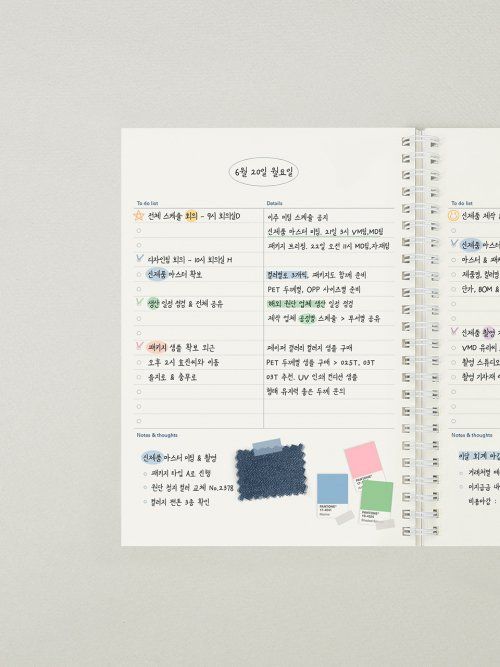 6월 20일 월요일
To do list
Details
전체 스케줄 회의 - 9시 회의실D
이주 미팅 스케줄 공지
신제품 마스터 미팅, 21일 3시 VM팀, MD팀
패키지 트리징, 22일 오전 11시 MD팀, 자재팀
디자인팀 회의 - 10시 회의실 H
신제품 마스터 확보
컬러별로 3개씩, 패키지도 함께 준비
PET 두께별, OPP 사이즈별 준비
생산 일정 점검 & 전체 공유
해외 원단 업체 생산 일정 점검
제작 업체 공정별 스케줄 > 부서별 공유
패키지 샘플 확보 외근
페이퍼 갤러리 컬러지 샘플 구매
오후 2시 효진씨와 이동
PET 두께별 샘플 구매 > 025T, 03T
을지로 & 충무로
03T 추천, UV 인쇄 컨디션 샘플
형태 유지력 좋은 두께 문의
Notes & thoughts
신제품 마스터 미팅 & 촬영
패키지 타입 A로 진행
원단 청지 컬러 교체 No.2378
컬러지 펜톤 3종 확인
PANTONE®
PANTONE®
PANTONE®
To do list
신제품 제작
신제품 마스
마스터 & 패
제품별, 컬러별
단가, BOM &
신제품 촬영
VMD 유라씨
촬영 스튜디오
촬영 기자재
Notes & thoughts
이달 회계 마감
거래처별
미지급금
비용마감 :